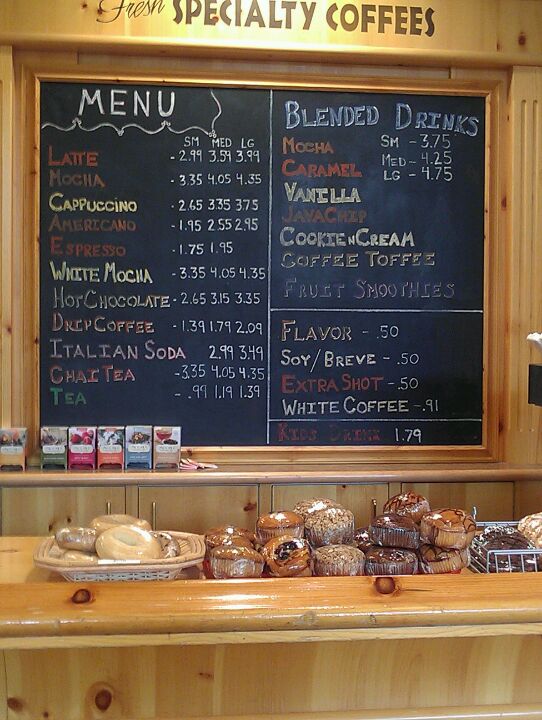 Fresh SPECIALTY COFFEES
MENU
SM MED LG
LATTE - 2.99 3.59 3.99
MOCHA - 3.35 4.05 4.35
CAPPUCCINO - 2.65 3.35 3.75
AMERICANO - 1.95 2.55 2.95
ESPRESSO - 1.75 1.95
WHITE MOCHA - 3.35 4.05 4.35
HOT CHOCOLATE - 2.65 3.15 3.35
DRIP COFFEE - 1.39 1.79 2.09
ITALIAN SODA 2.99 3.49
CHAI TEA - 3.35 4.05 4.35
TEA - .99 1.19 1.39
BLENDED DRINKS
MOCHA SM - 3.75
CARAMEL MED - 4.25
LG - 4.75
VANILLA
JAVACHIP
COOKIE N CREAM
COFFEE TOFFEE
FRUIT SMOOTHIES
FLAVOR - .50
SOY/BREVE - .50
EXTRA SHOT - .50
WHITE COFFEE - .91
KIDS DRINK 1.79